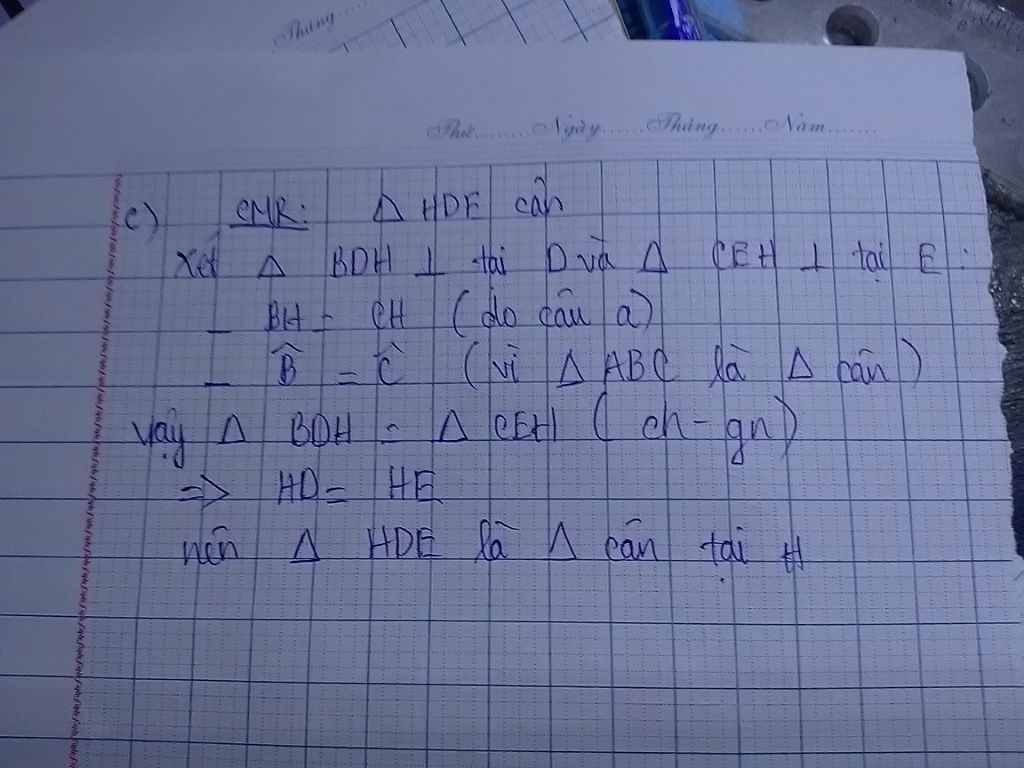 Tháng
Thứ........Ngày......Tháng......Năm.......
c) CMR: Δ HDE cân
Xét Δ BDH ⊥ tại D và Δ CEH ⊥ tại E:
_ BH = CH (do câu a)
_ B̂ = Ĉ (vì Δ ABC là Δ cân)
Vậy Δ BDH = Δ CEH ( ch - gn)
=> HD = HE
nên Δ HDE là Δ cân tại H